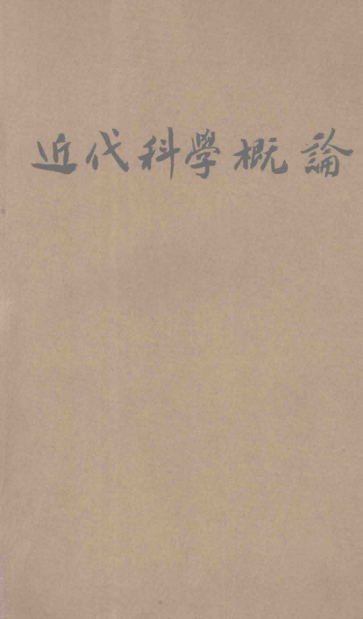 近代科學概論